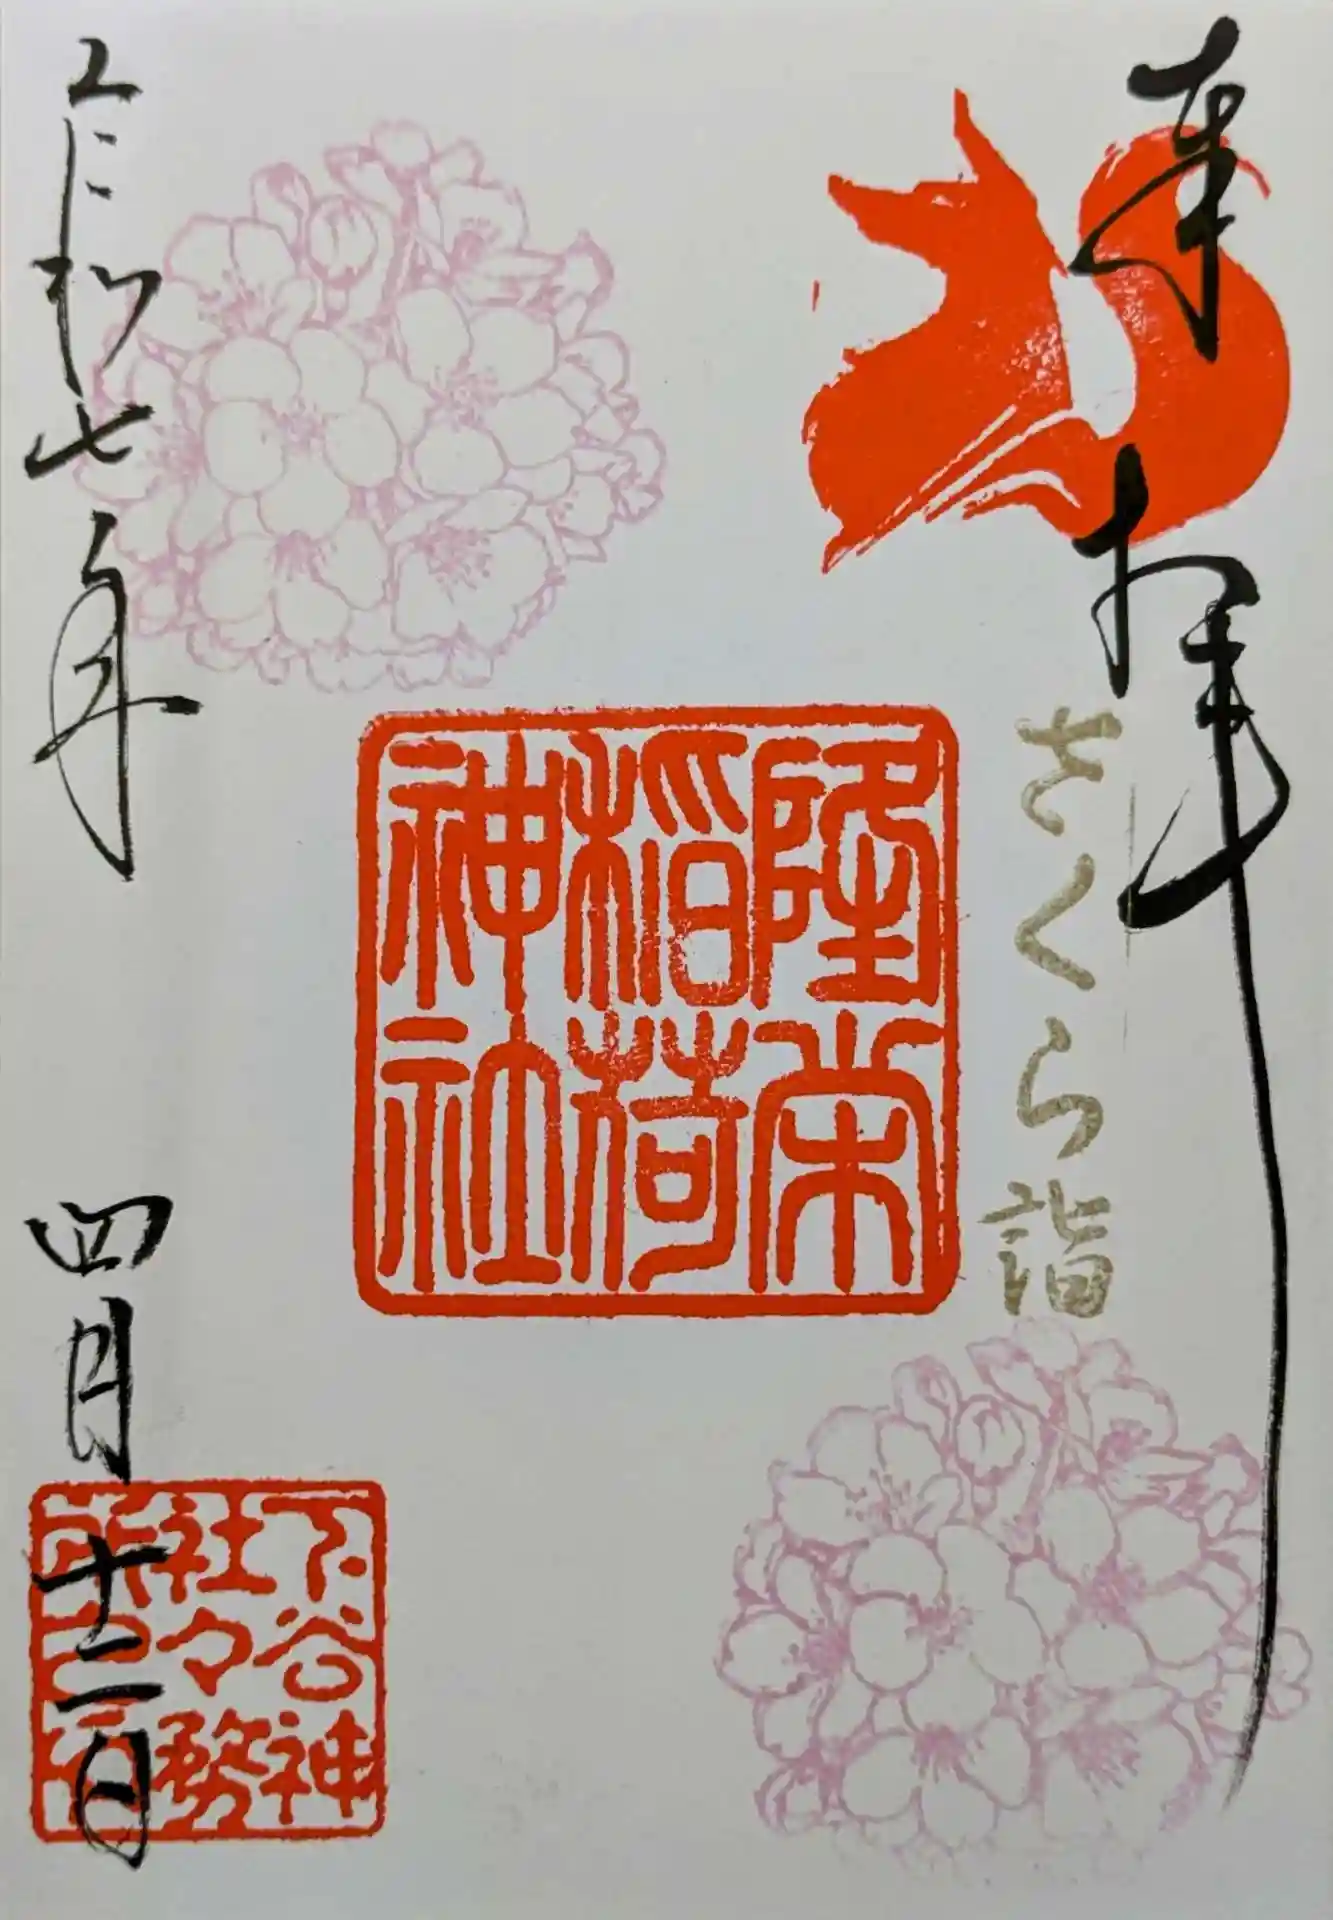 奉拝
さくら詣
隆栄
稲荷
神社
令和七年 四月十二日
下谷神
社々務
所之印